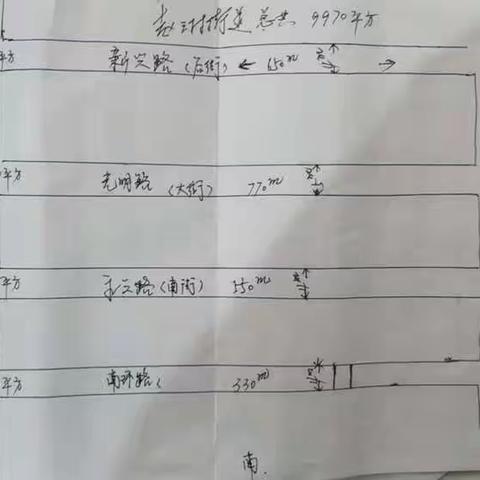 赵村街道总共 9970平方
平方 新兴路(后街) 650m
平方 光明路(大街) 770m
平方 路(南街) 550m
平方 南环路( 330m
南.